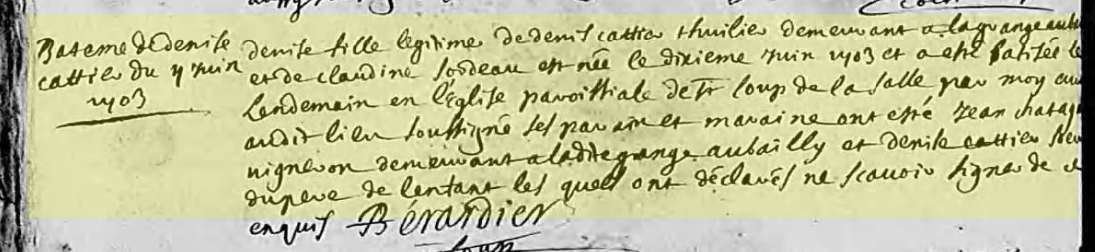 Bateme de denise
cattier du 11 Juin
1703
denise fille legitime de denis cattier thuilier demeurant a la grange aubai
et de claudine sordeau est née le dixieme Juin 1703 et a esté batisée le
lendemain en l'Eglise paroissiale de St loup de la salle par moy curé
audit lieu soussigné ses parain et maraine ont esté Jean
vigneron demeurant a ladite grange aubailly et denise cattier
du pere de lenfant les quels ont déclarés ne scavoir signer de ce
enquis Bérardier